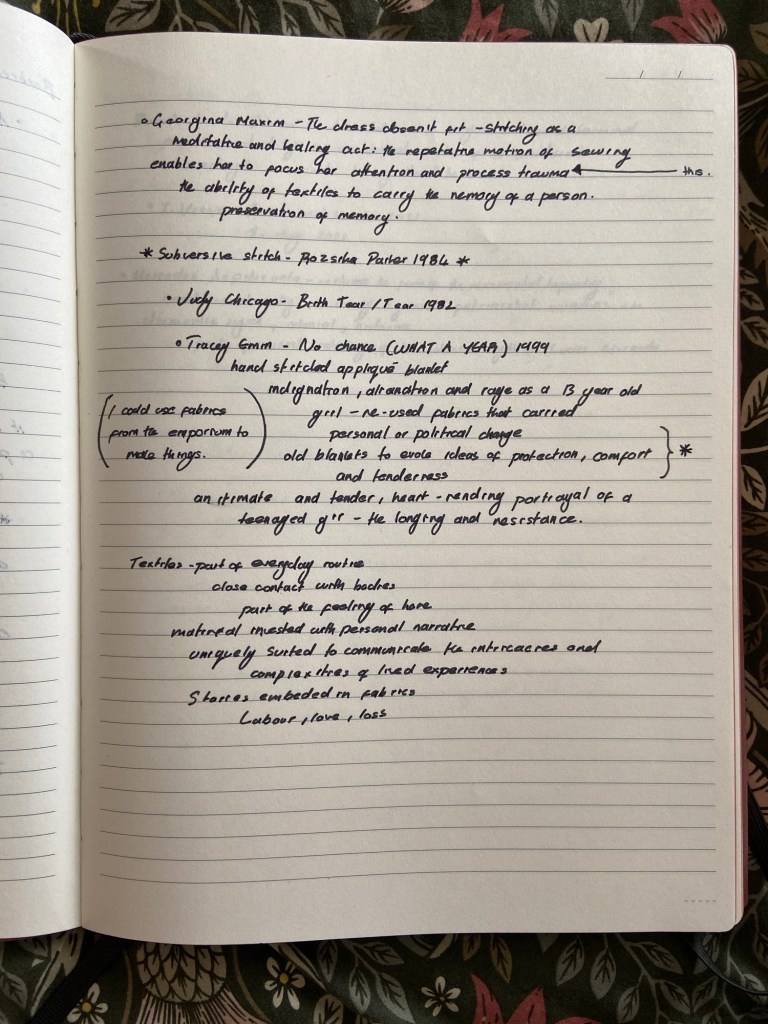 • Georgina Maxim - The dress doesn't fit - stitching as a
meditative and healing act: the repetative motion of sewing
enables her to focus her attention and process trauma ← this.
the ability of textiles to carry the memory of a person.
preservation of memory.
* Subversive stitch - Rozsika Parker 1984 *
• Judy Chicago - Birth Tear / Tear 1982
• Tracey Emin - No chance (WHAT A YEAR) 1999
hand stitched appliqué blanket
indignation, alienation and rage as a 13 year old
girl - re-used fabrics that carried
personal or political change
old blankets to evoke ideas of protection, comfort
and tenderness
} *
(I could use fabrics
from the emporium to
make things.)
an itimate and tender, heart-rending portrayal of a
teenaged girl - the longing and resistance.
Textiles - part of everyday routine
close contact with bodies
part of the feeling of home
material invested with personal narrative
uniquely suited to communicate the intricacies and
complexities of lived experiences
Stories embeded in fabrics
Labour, love, loss